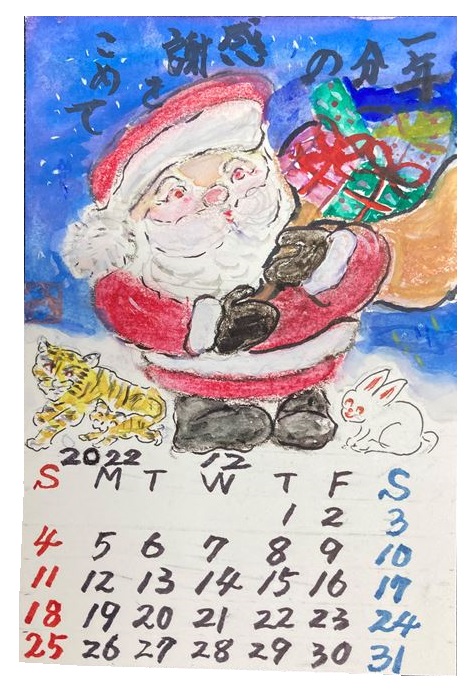 一年
分
の
感
謝を
こめて
2022 12
S M T W T F S
1 2 3
4 5 6 7 8 9 10
11 12 13 14 15 16 17
18 19 20 21 22 23 24
25 26 27 28 29 30 31